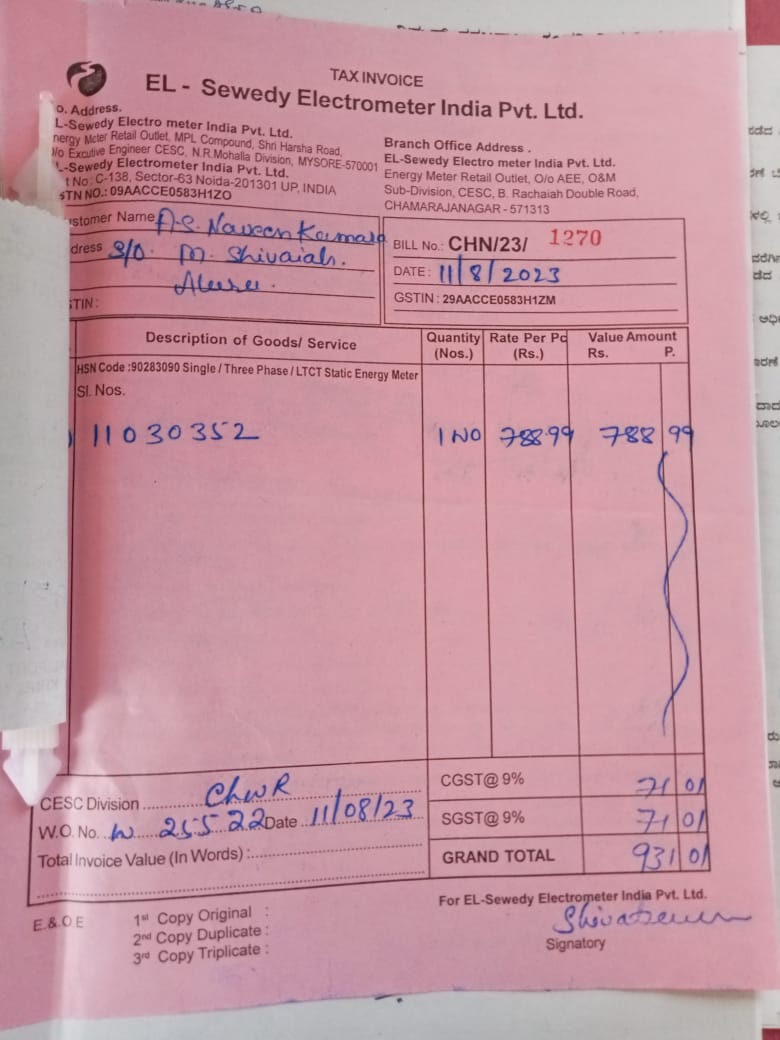 TAX INVOICE
EL - Sewedy Electrometer India Pvt. Ltd.
o. Address.
L-Sewedy Electro meter India Pvt. Ltd.
nergy Meter Retail Outlet, MPL Compound, Shri Harsha Road,
/o Excutive Engineer CESC, N.R.Mohalla Division, MYSORE-570001
L-Sewedy Electrometer India Pvt. Ltd.
t No: C-138, Sector-63 Noida-201301 UP, INDIA
STN NO.: 09AACCE0583H1ZO
Branch Office Address .
EL-Sewedy Electro meter India Pvt. Ltd.
Energy Meter Retail Outlet, O/o AEE, O&M
Sub-Division, CESC, B. Rachaiah Double Road,
CHAMARAJANAGAR - 571313
ustomer Name A.S. Naveen Kumar
dress S/o. M. Shivaiah.
Aluru.
STIN :
BILL No.: CHN/23/ 1270
DATE : 11/8/2023
GSTIN : 29AACCE0583H1ZM
Description of Goods/ Service Quantity (Nos.) Rate Per Pc (Rs.) Value Amount Rs. P.
HSN Code :90283090 Single / Three Phase / LTCT Static Energy Meter
Sl. Nos.
) 11030352 1 NO 788.99 788 99
CGST@ 9% 71 01
SGST@ 9% 71 01
GRAND TOTAL 931 01
CESC Division ChNR
W.O. No. W 25522 Date 11/08/23
Total Invoice Value (In Words) :
E.&.O.E
1st Copy Original :
2nd Copy Duplicate :
3rd Copy Triplicate :
For EL-Sewedy Electrometer India Pvt. Ltd.
Signatory